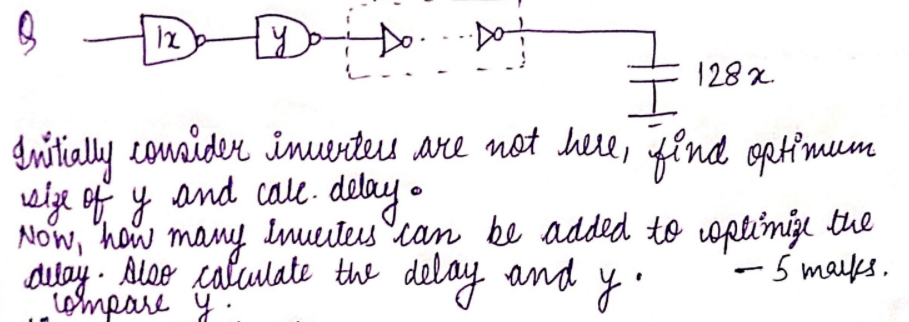 Q
1x y
128x.
Initially consider inverters are not here, find optimum
size of y and calc. delay.
Now, how many inverters can be added to optimize the
delay. Also calculate the delay and y. - 5 marks.
compare y.